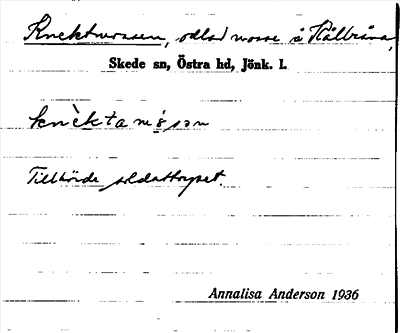 Knektmossen, odlad mosse å Källeräng,
Skede sn, Östra hd, Jönk. l.
knèktamósən
Tillhörde soldattorpet.
Annalisa Anderson 1936